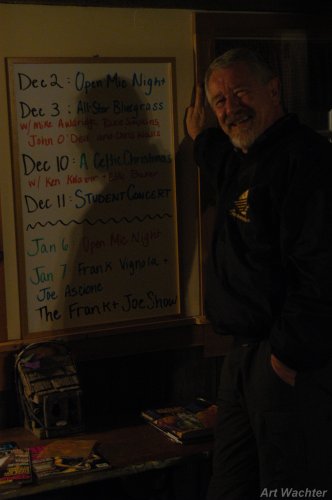 Dec 2: Open Mic Night
Dec 3: All-Star Bluegrass
w/ Mike Auldridge, Dave Giegerich,
John O'Dell and
Dec 10: A Celtic Christmas
w/ Ken Kolodner +
Dec 11: Student Concert
Jan 6: Open Mic Night
Jan 7: Frank Vignola +
Joe Ascione
The Frank + Joe Show
Art Wachter